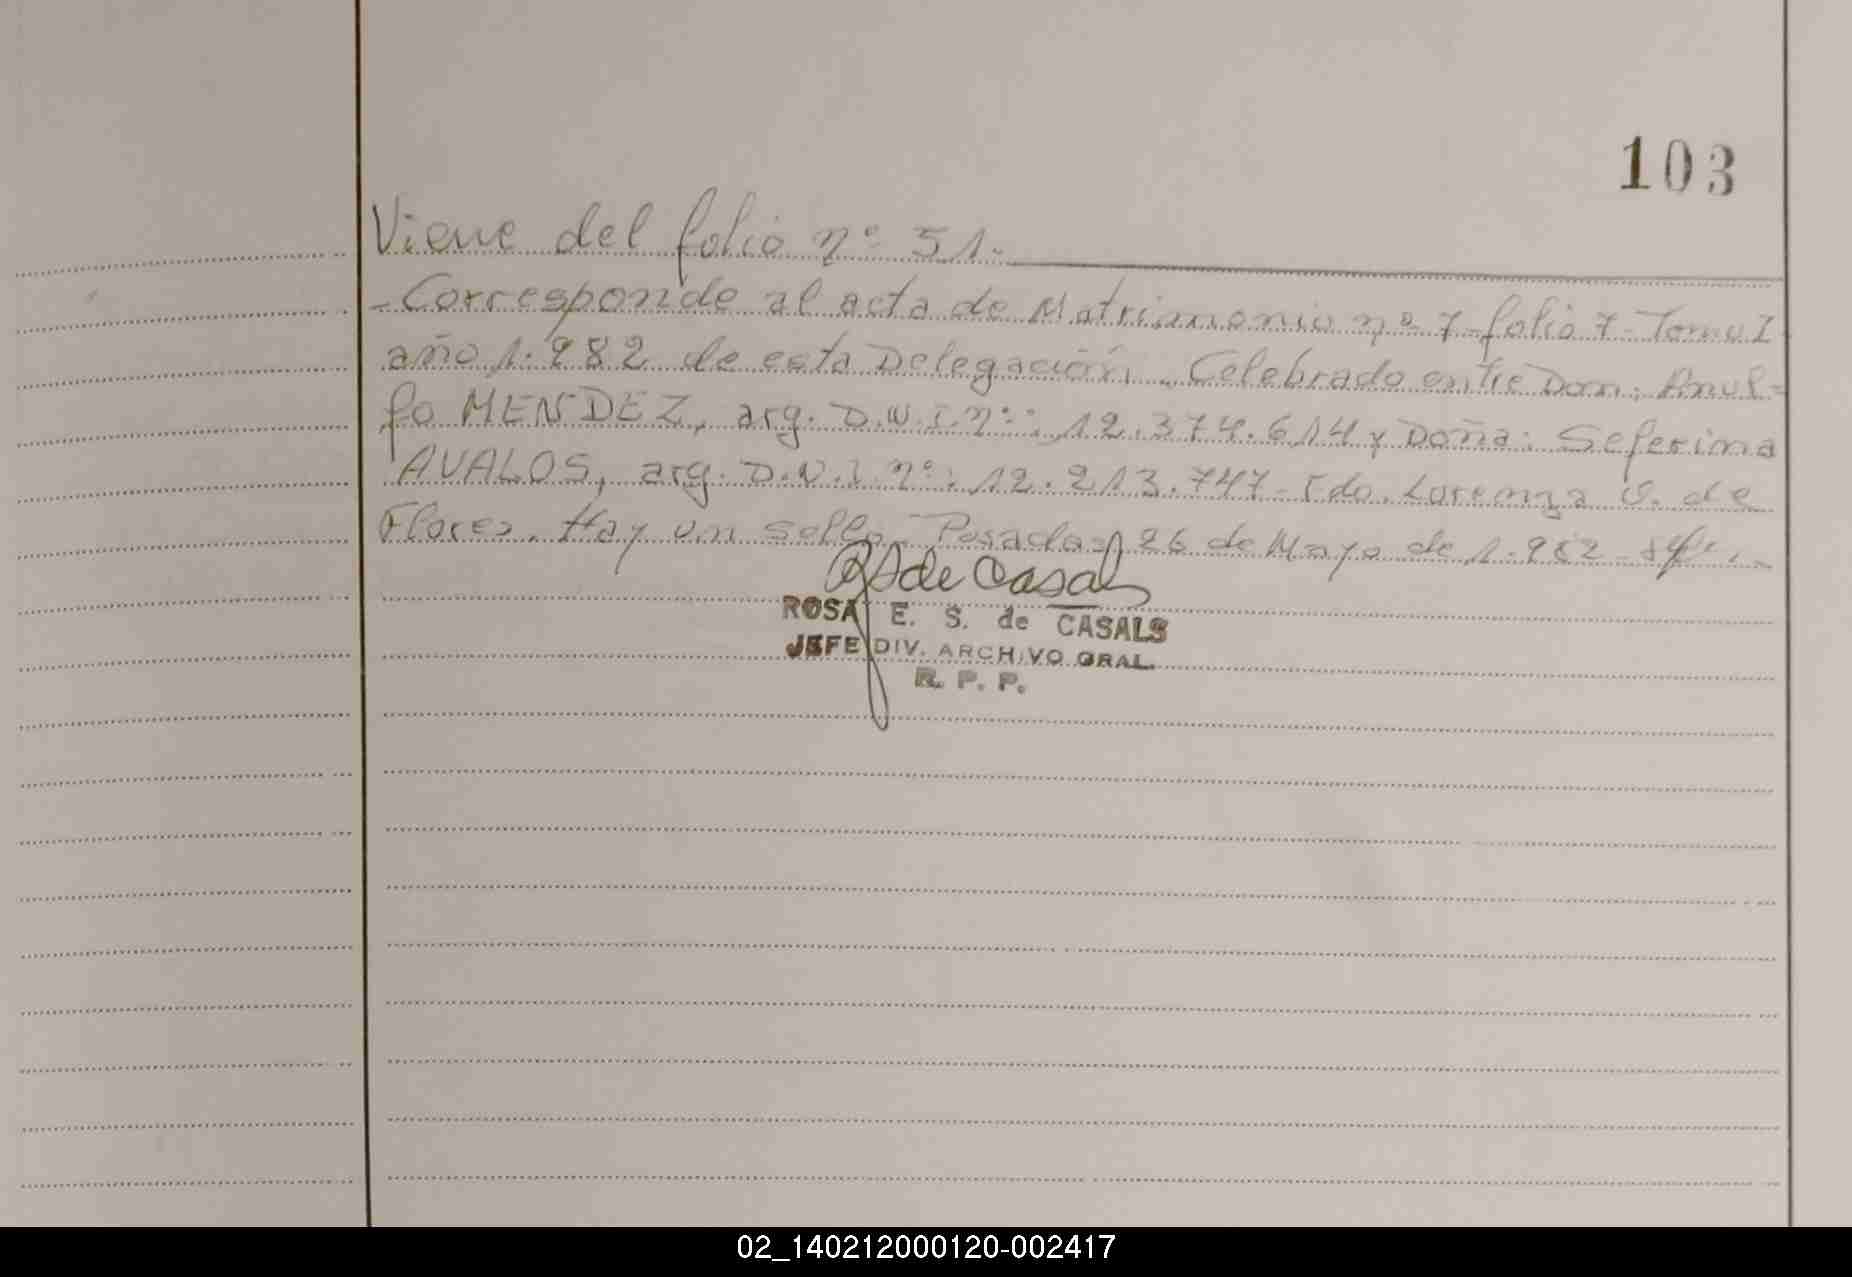 103
Viene del folio nº 51.
- Corresponde al acta de Matrimonio nº 7 - folio 7 - Tomo I
año 1.982 de esta Delegación. Celebrado entre Don: Arnul=
fo MENDEZ, arg. D.N.I. nº: 12.374.614 y Doña: Seferina
AVALOS, arg. D.N.I. nº: 12.213.747 - Fdo. Lorenza O. de
Flores. Hay un sello - Posadas 26 de Mayo de 1.982 -
de Casals
ROSA E. S. de CASALS
JEFE DIV. ARCHIVO GRAL.
R. P. P.
02_140212000120-002417